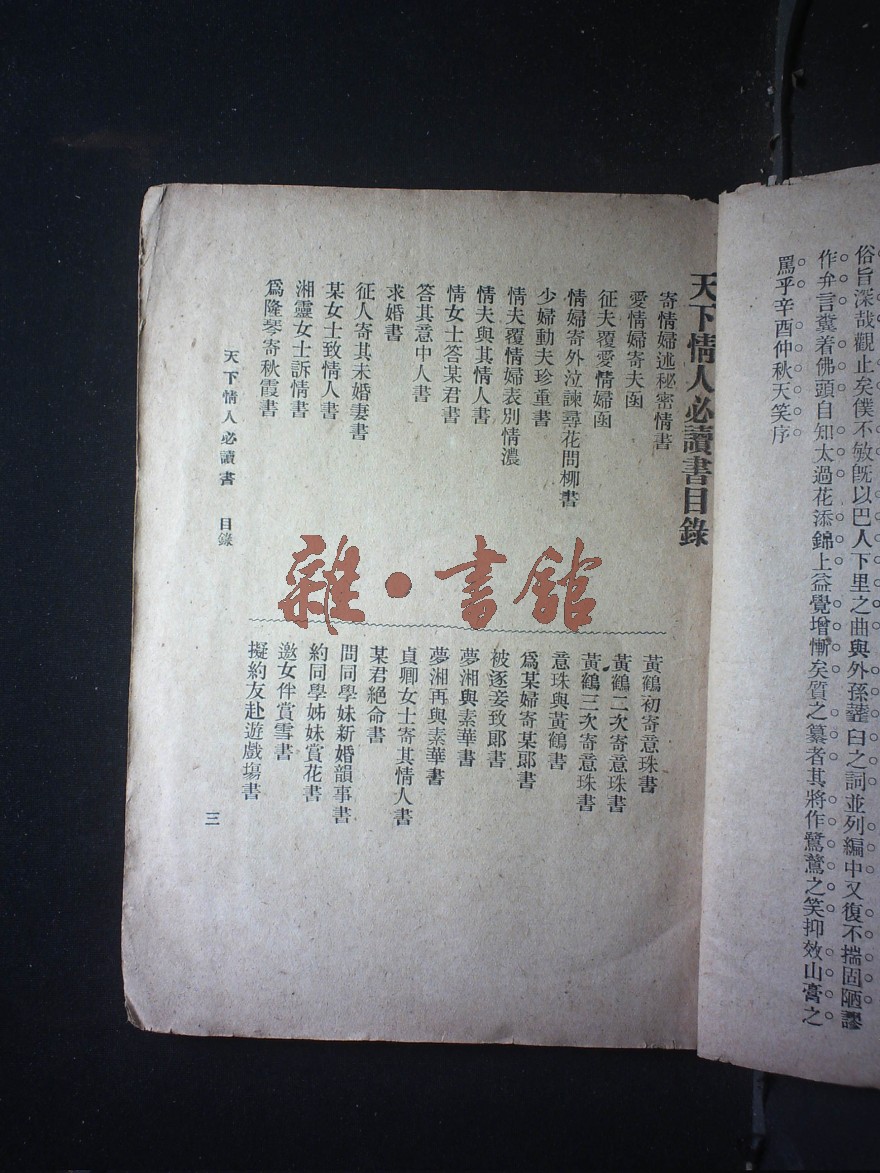 俗旨深哉觀止矣僕不敏旣以巴人下里之曲與外孫虀臼之詞並列編中又復不揣固陋謬
作弁言糞着佛頭自知太過花添錦上益覺增慚矣質之纂者其將作鷺鷥之笑抑效山膏之
罵乎辛酉仲秋天笑序
天下情人必讀書目錄
寄情婦述秘密情書
愛情婦寄夫函
征夫覆愛情婦函
情婦寄外泣諫尋花問柳書
少婦動夫珍重書
情夫覆情婦表別情濃
情夫與其情人書
情女士答某君書
答其意中人書
求婚書
征人寄其未婚妻書
某女士致情人書
湘靈女士訴情書
爲隆琴寄秋霞書
黃鶴初寄意珠書
黃鶴二次寄意珠書
黃鶴三次寄意珠書
意珠與黃鶴書
爲某婦寄某郎書
被逐妾致郎書
夢湘與素華書
夢湘再與素華書
貞卿女士寄其情人書
某君絕命書
問同學妹新婚韻事書
約同學姊妹賞花書
邀女伴賞雪書
擬約友赴遊戲塲書
天下情人必讀書 目錄
三
雜·書館